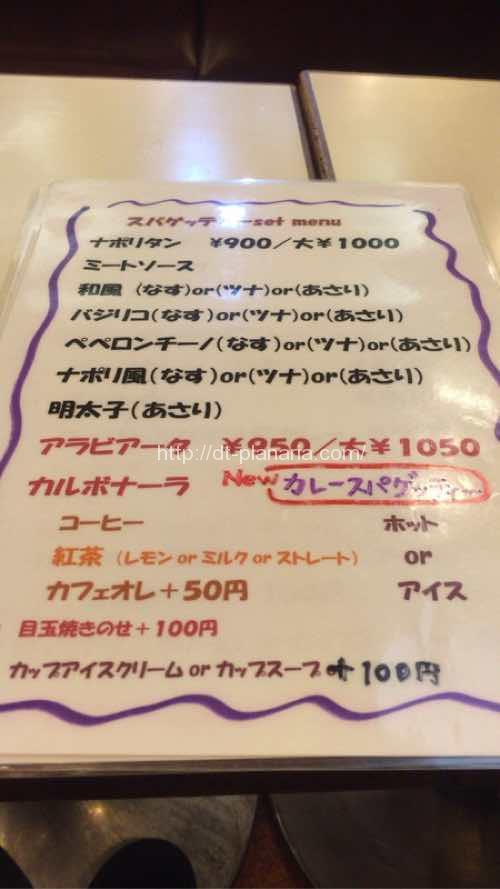 スパゲッティーset menu
ナポリタン ¥900／大¥1000
ミートソース
和風 (なす)or(ツナ)or(あさり)
バジリコ(なす)or(ツナ)or(あさり)
ペペロンチーノ(なす)or(ツナ)or(あさり)
ナポリ風(なす)or(ツナ)or(あさり)
明太子(あさり)
アラビアータ ¥950／大¥1050
http://dt-planaria.com/
カルボナーラ New カレースパゲッティー
コーヒー ホット
紅茶 (レモン or ミルク or ストレート) or
カフェオレ＋50円 アイス
目玉焼きのせ＋100円
カップアイスクリーム or カップスープ ＋100円